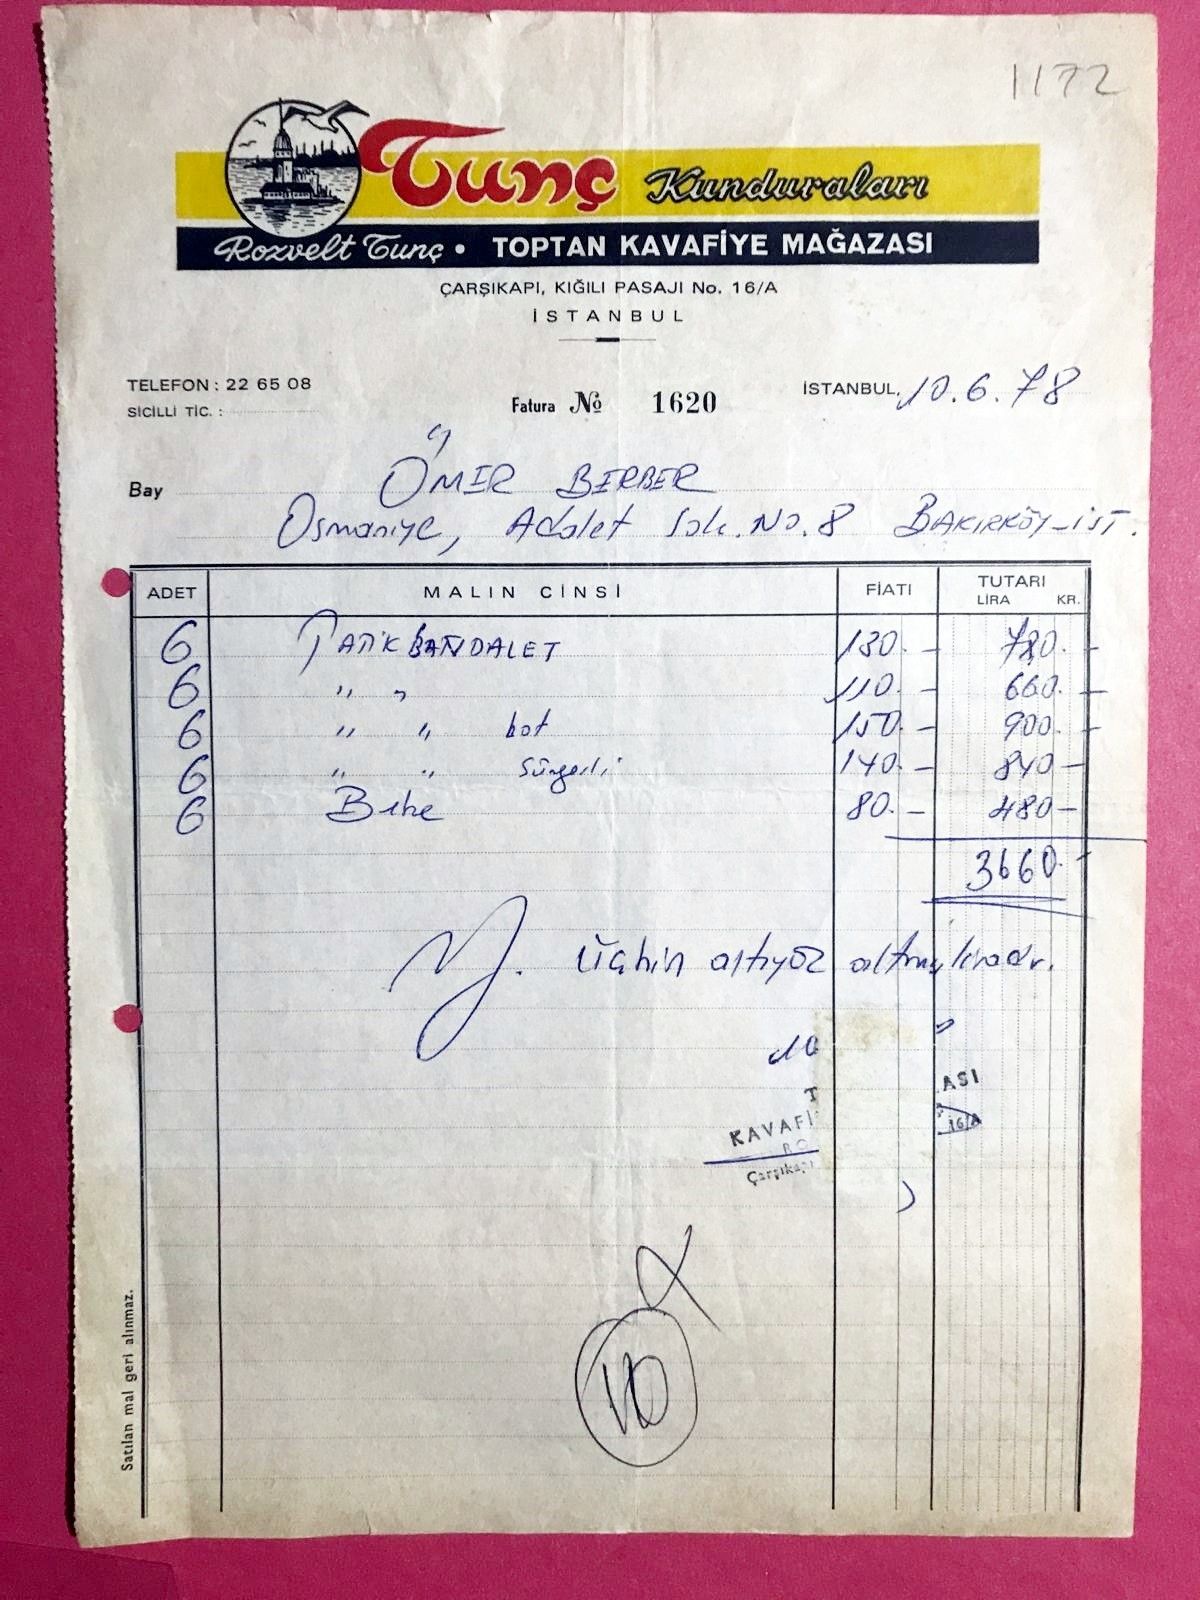 1172
Tunç Kunduraları
Rozvelt Tunç • TOPTAN KAVAFİYE MAĞAZASI
ÇARŞIKAPI, KIĞILI PASAJI No. 16/A
İSTANBUL
TELEFON : 22 65 08
SİCİLLİ TİC. :
Fatura № 1620
İSTANBUL, 10.6.78
Bay ÖMER BERBER
Osmaniye, Adalet Sok. No. 8 BAKIRKÖY-İST.
ADET MALIN CİNSİ FİATI TUTARI
LİRA KR.
6 PATİK SANDALET 130.- 780.-
6 " " 110.- 660.-
6 " " bot 150.- 900.-
6 " " Süngerli 140.- 840.-
6 Bebe 80.- 480-
3660.-
Y. Üçbin altıyüz altmış liradır.
10
T ASI
KAVAFİ 16/A
RO
Çarşıkapı
10
Satılan mal geri alınmaz.